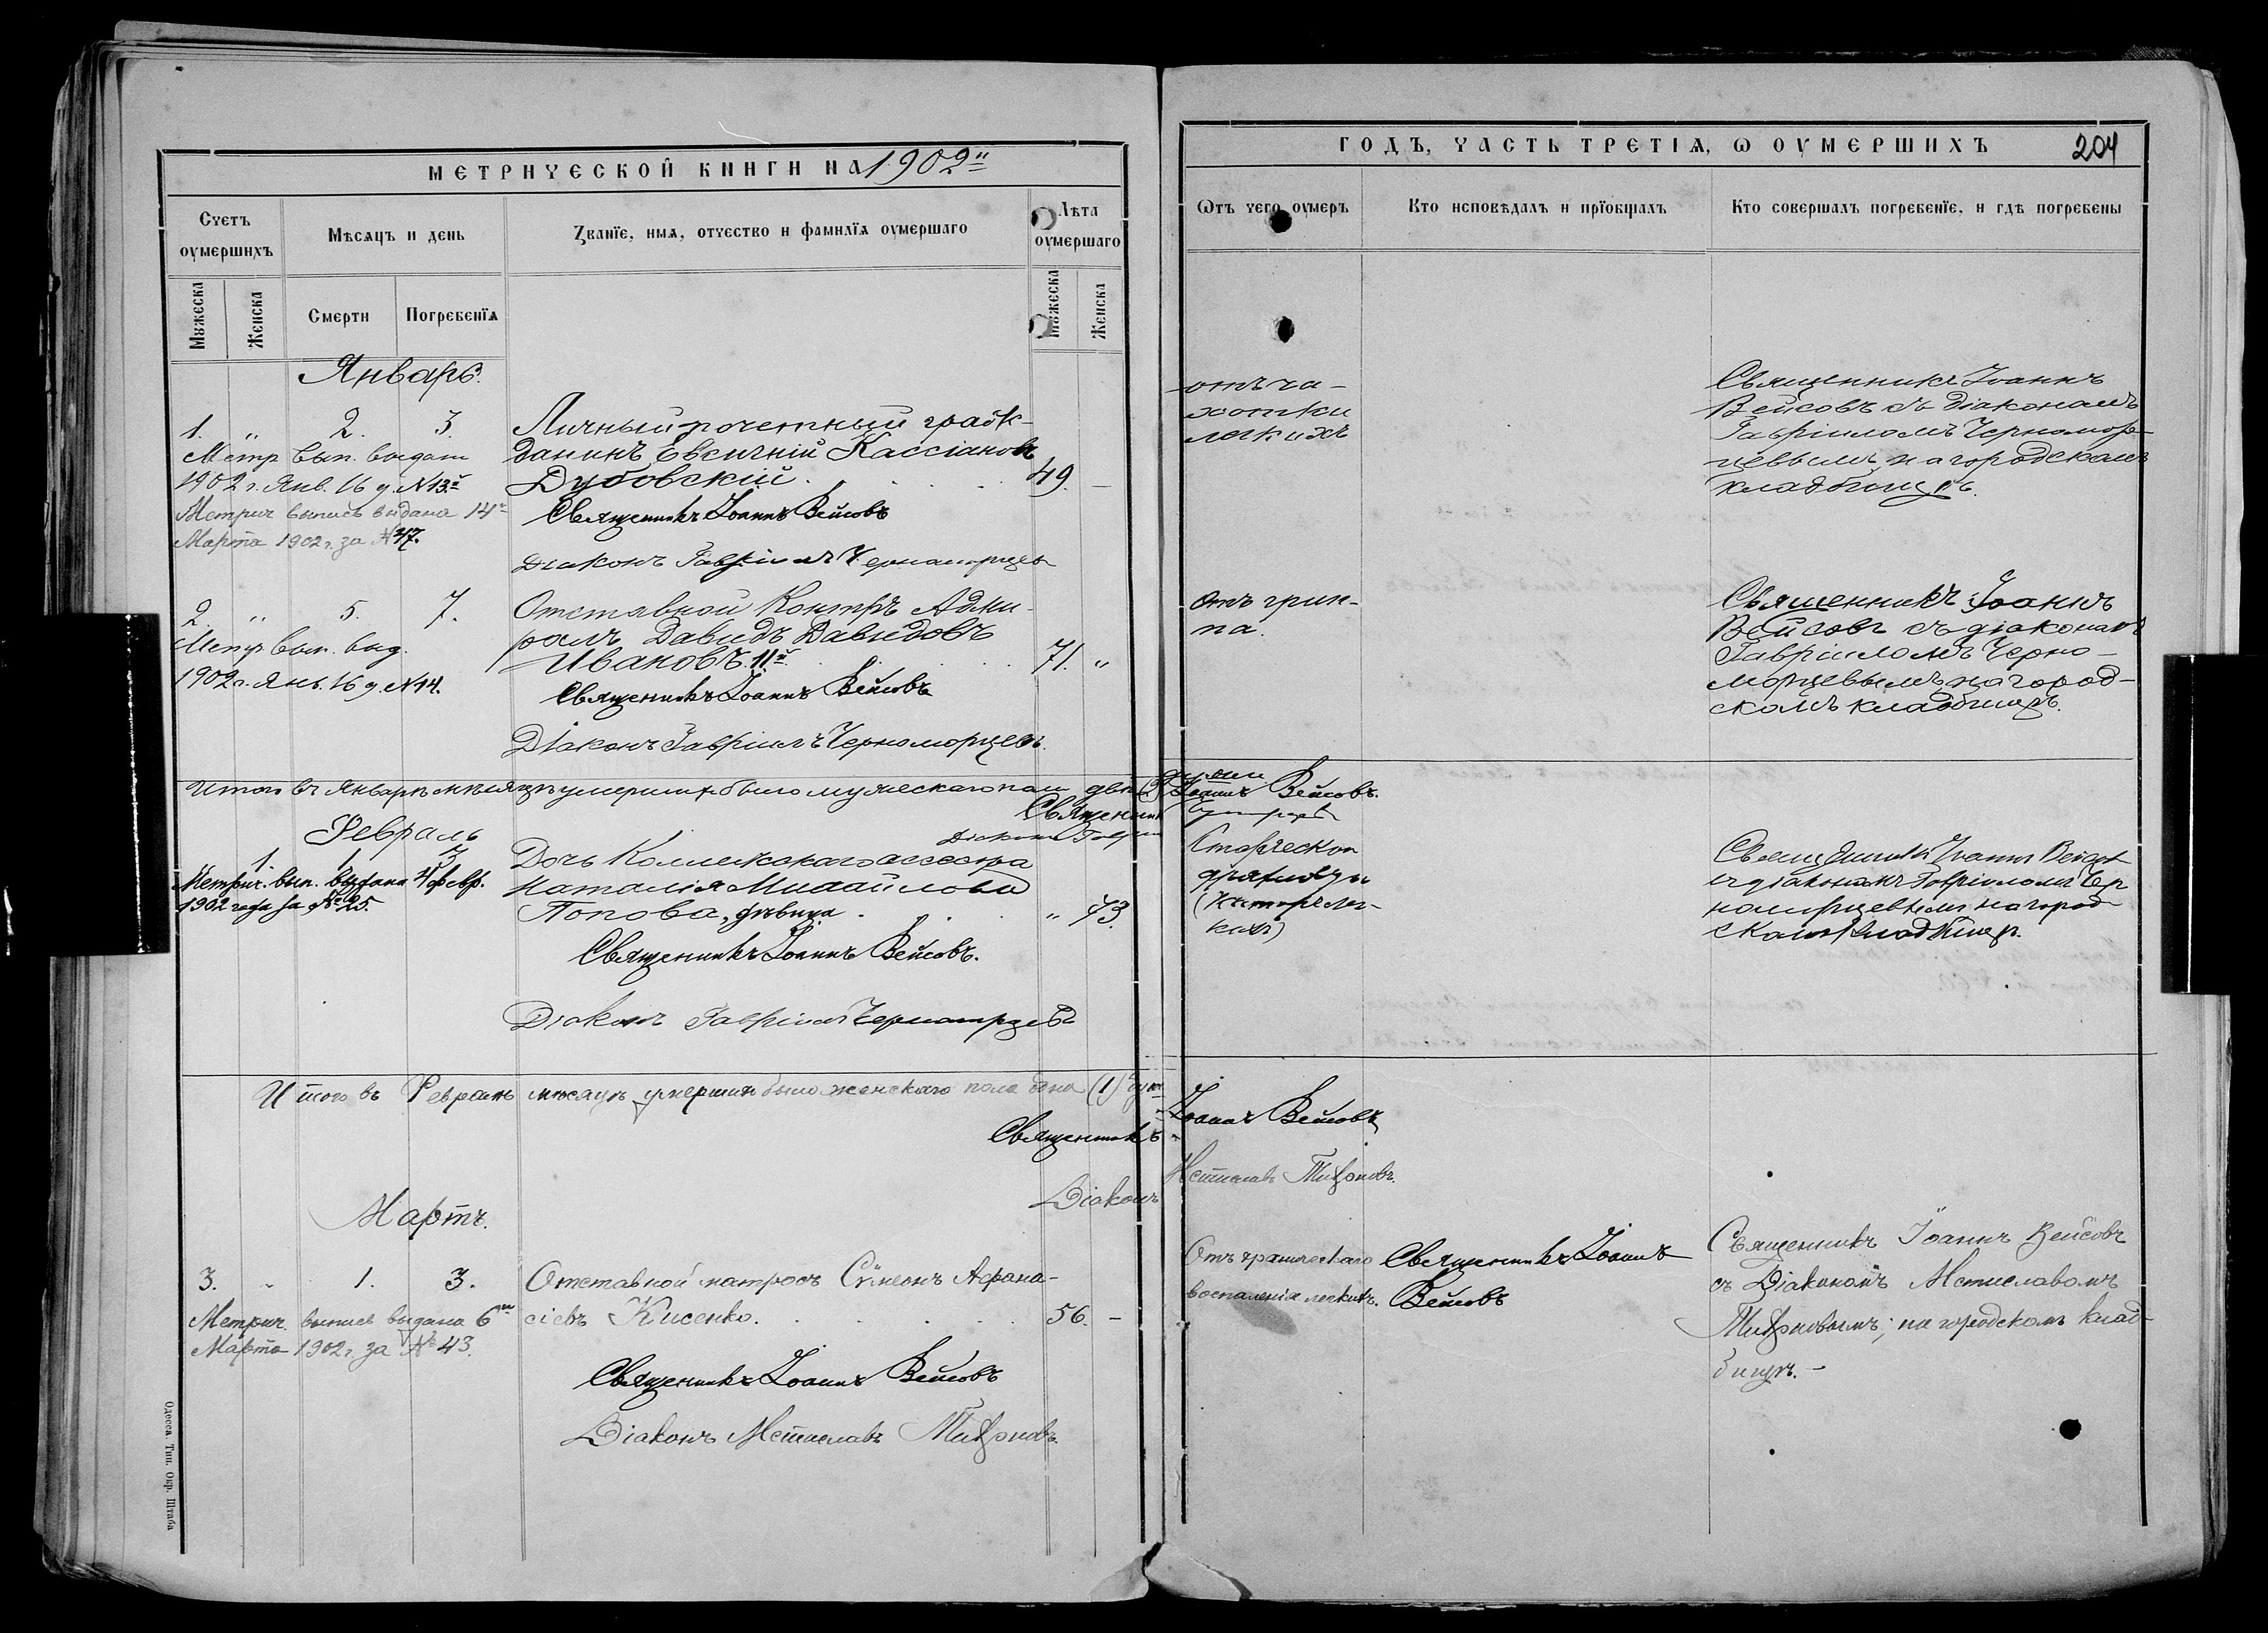 МЕТРИЧЕСКОЙ КНИГИ НА 1902й
Счетъ оумершихъ
Мѣсяцъ и день
Званїе, имя, отчество и фамилїя оумершаго
Лѣта оумершаго
Мужеска
Женска
Смерти
Погребенїя
Мужеска
Женска
Январь.
1. " 2. 3. Личный почетный граж-
данинъ Евгеній Кассіановъ
Дубовскій. 49. –
Метр. вып. выдана
1902 г. Янв. 16 д. №13й
Метрич выпись выдана 14го
Марта 1902 г. за №47.
Священникъ Іоаннъ Вейсовъ
Діаконъ Гавріилъ Черноморцевъ
2. " 5. 7. Отставной Контръ Адми-
ралъ Давидъ Давидовъ
Ивановъ 11й 71. "
Метр. вып. выд.
1902 г. Янв. 16 д. №14.
Священникъ Іоаннъ Вейсовъ
Діаконъ Гавріилъ Черноморцевъ.
Итого въ Январѣ мѣсяцѣ умершихъ было мужескаго пола два (2)
Священникъ
Діаконъ
Февраль
1. 1. 3. Дочь Коллежскаго ассесора
Наталія Михайлова
Попова, дѣвица. " 73.
Метрич. вып. выдана 4 февр.
1902 года за №25.
Священникъ Іоаннъ Вейсовъ.
Діаконъ Гавріилъ Черноморцевъ
Итого въ Февралѣ мѣсяцѣ умершихъ было женскаго пола одна (1) душа
Священникъ
Діаконъ
Мартъ.
3. - 1. 3. Отставной матросъ Сѵмеонъ Афана-
сіевъ Кисенко. 56. –
Метрич. выпись выдана 6го
Марта 1902 г. за №43.
Священникъ Іоаннъ Вейсовъ
Діаконъ Мстиславъ
Одесса. Тип. Окр. Штаба
ГОДЪ, ЧАСТЬ ТРЕТЇЯ, Ѡ ОУМЕРШИХЪ 204
Ѡтъ чего оумеръ
Кто исповѣдалъ и прїобщалъ
Кто совершалъ погребенїе, и гдѣ погребены
отъ ча-
хотки
легкихъ
Священникъ Іоаннъ
Вейсовъ съ діакономъ
Гавріиломъ Черномор-
цевымъ, на городскомъ
кладбищѣ.
Отъ грип-
па.
Священникъ Іоаннъ
Вейсовъ съ діакономъ
Гавріиломъ Черно-
морцевымъ, на город-
скомъ кладбищѣ.
Іоаннъ Вейсовъ.
Старческой
дряхлости
Священникъ Іоаннъ Вейсовъ
съ діакономъ Гавріиломъ Чер
номорцевымъ на город
скомъ кладбищѣ.
Іоаннъ Вейсовъ
Мстиславъ
Отъ хроническаго
воспаленія легкихъ.
Священникъ Іоаннъ
Вейсовъ
Священникъ Іоаннъ Вейсовъ
съ Діакономъ Мстиславомъ
на городскомъ клад-
бищѣ. –